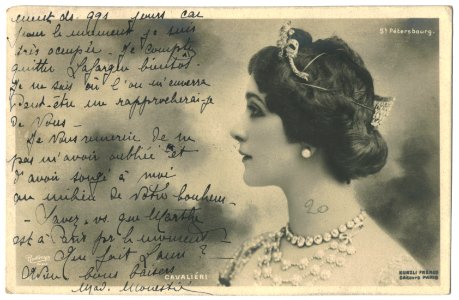 ement de qqs jours car
pour le moment je suis
très occupée. Je compte
quitter Lafargue bientôt.
Je ne sais où l'on m'enverra
Peut-être me rapprocherai-je
de Vous -
Je Vous remercie de ne
pas m'avoir oubliée et
d'avoir songé à moi
au milieu de Votre bonheur.
- Savez-vs. que Marthe
est à Paris pr. le moment?
- Que fait Laure?
Adieu bons baisers
Mad.
St Pétersbourg.
20
CAVALIERI
Reutlinger
KUNZLI FRÈRES
EDITEURS PARIS